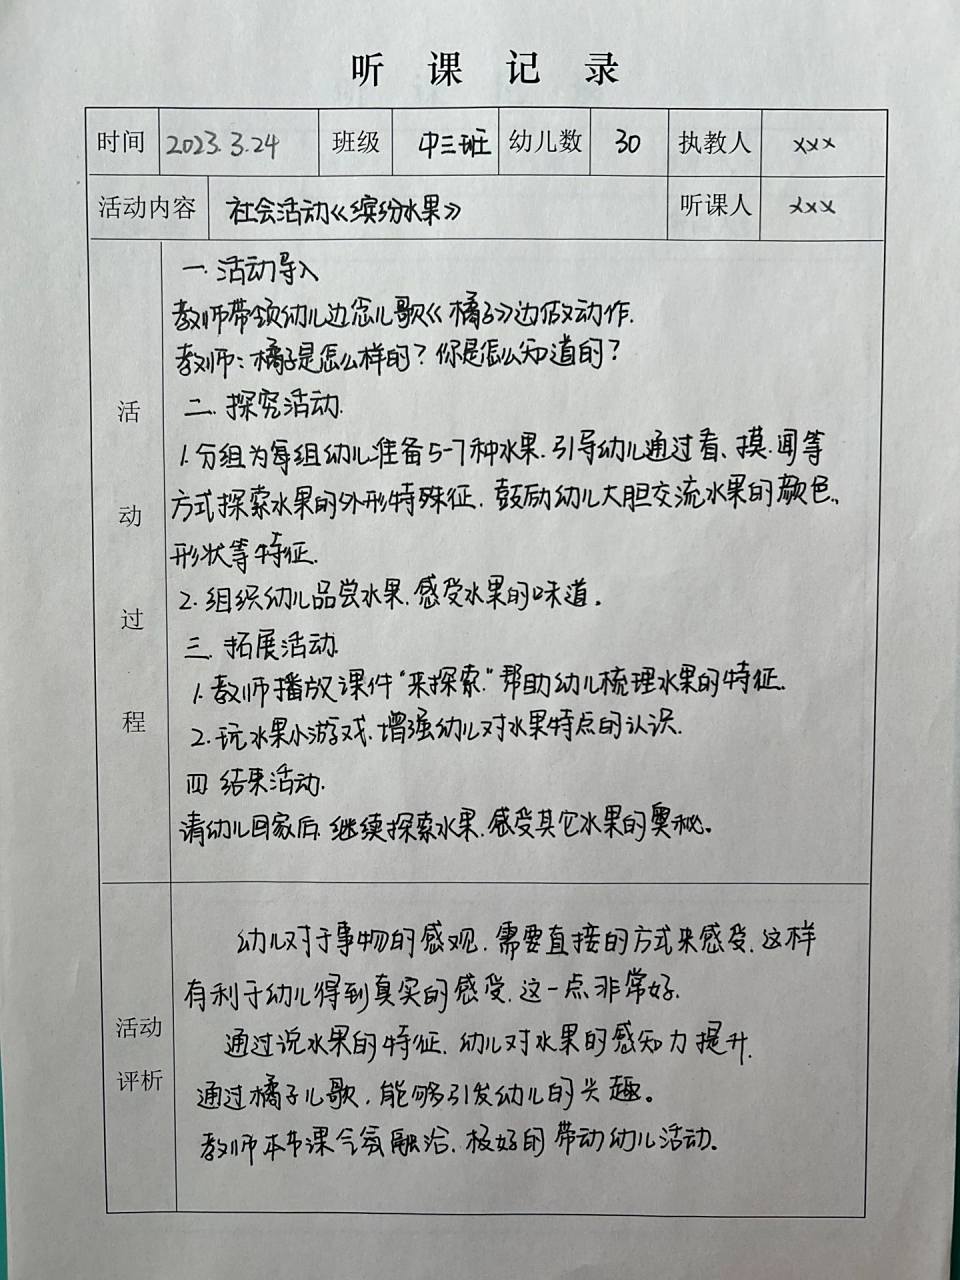 听课记录
时间 2023.3.24 班级 中三班 幼儿数 30 执教人 xxx
活动内容 社会活动《缤纷水果》 听课人 xxx
活动过程
一.活动导入
教师带领幼儿边念儿歌《橘子》边做动作.
教师:橘子是怎么样的?你是怎么知道的?
二.探究活动.
1.分组为每组幼儿准备5-7种水果.引导幼儿通过看、摸.闻等
方式探索水果的外形特殊征.鼓励幼儿大胆交流水果的颜色、
形状等特征.
2.组织幼儿品尝水果.感受水果的味道。
三.拓展活动.
1.教师播放课件“来探索."帮助幼儿梳理水果的特征.
2.玩水果小游戏.增强幼儿对水果特点的认识.
四 结束活动.
请幼儿回家后.继续探索水果.感受其它水果的奥秘。
活动评析
幼儿对于事物的感观.需要直接的方式来感受.这样
有利于幼儿得到真实的感受.这一点非常好.
通过说水果的特征.幼儿对水果的感知力提升.
通过橘子儿歌.能够引发幼儿的兴趣。
教师本节课气氛融洽.极好的带动幼儿活动。